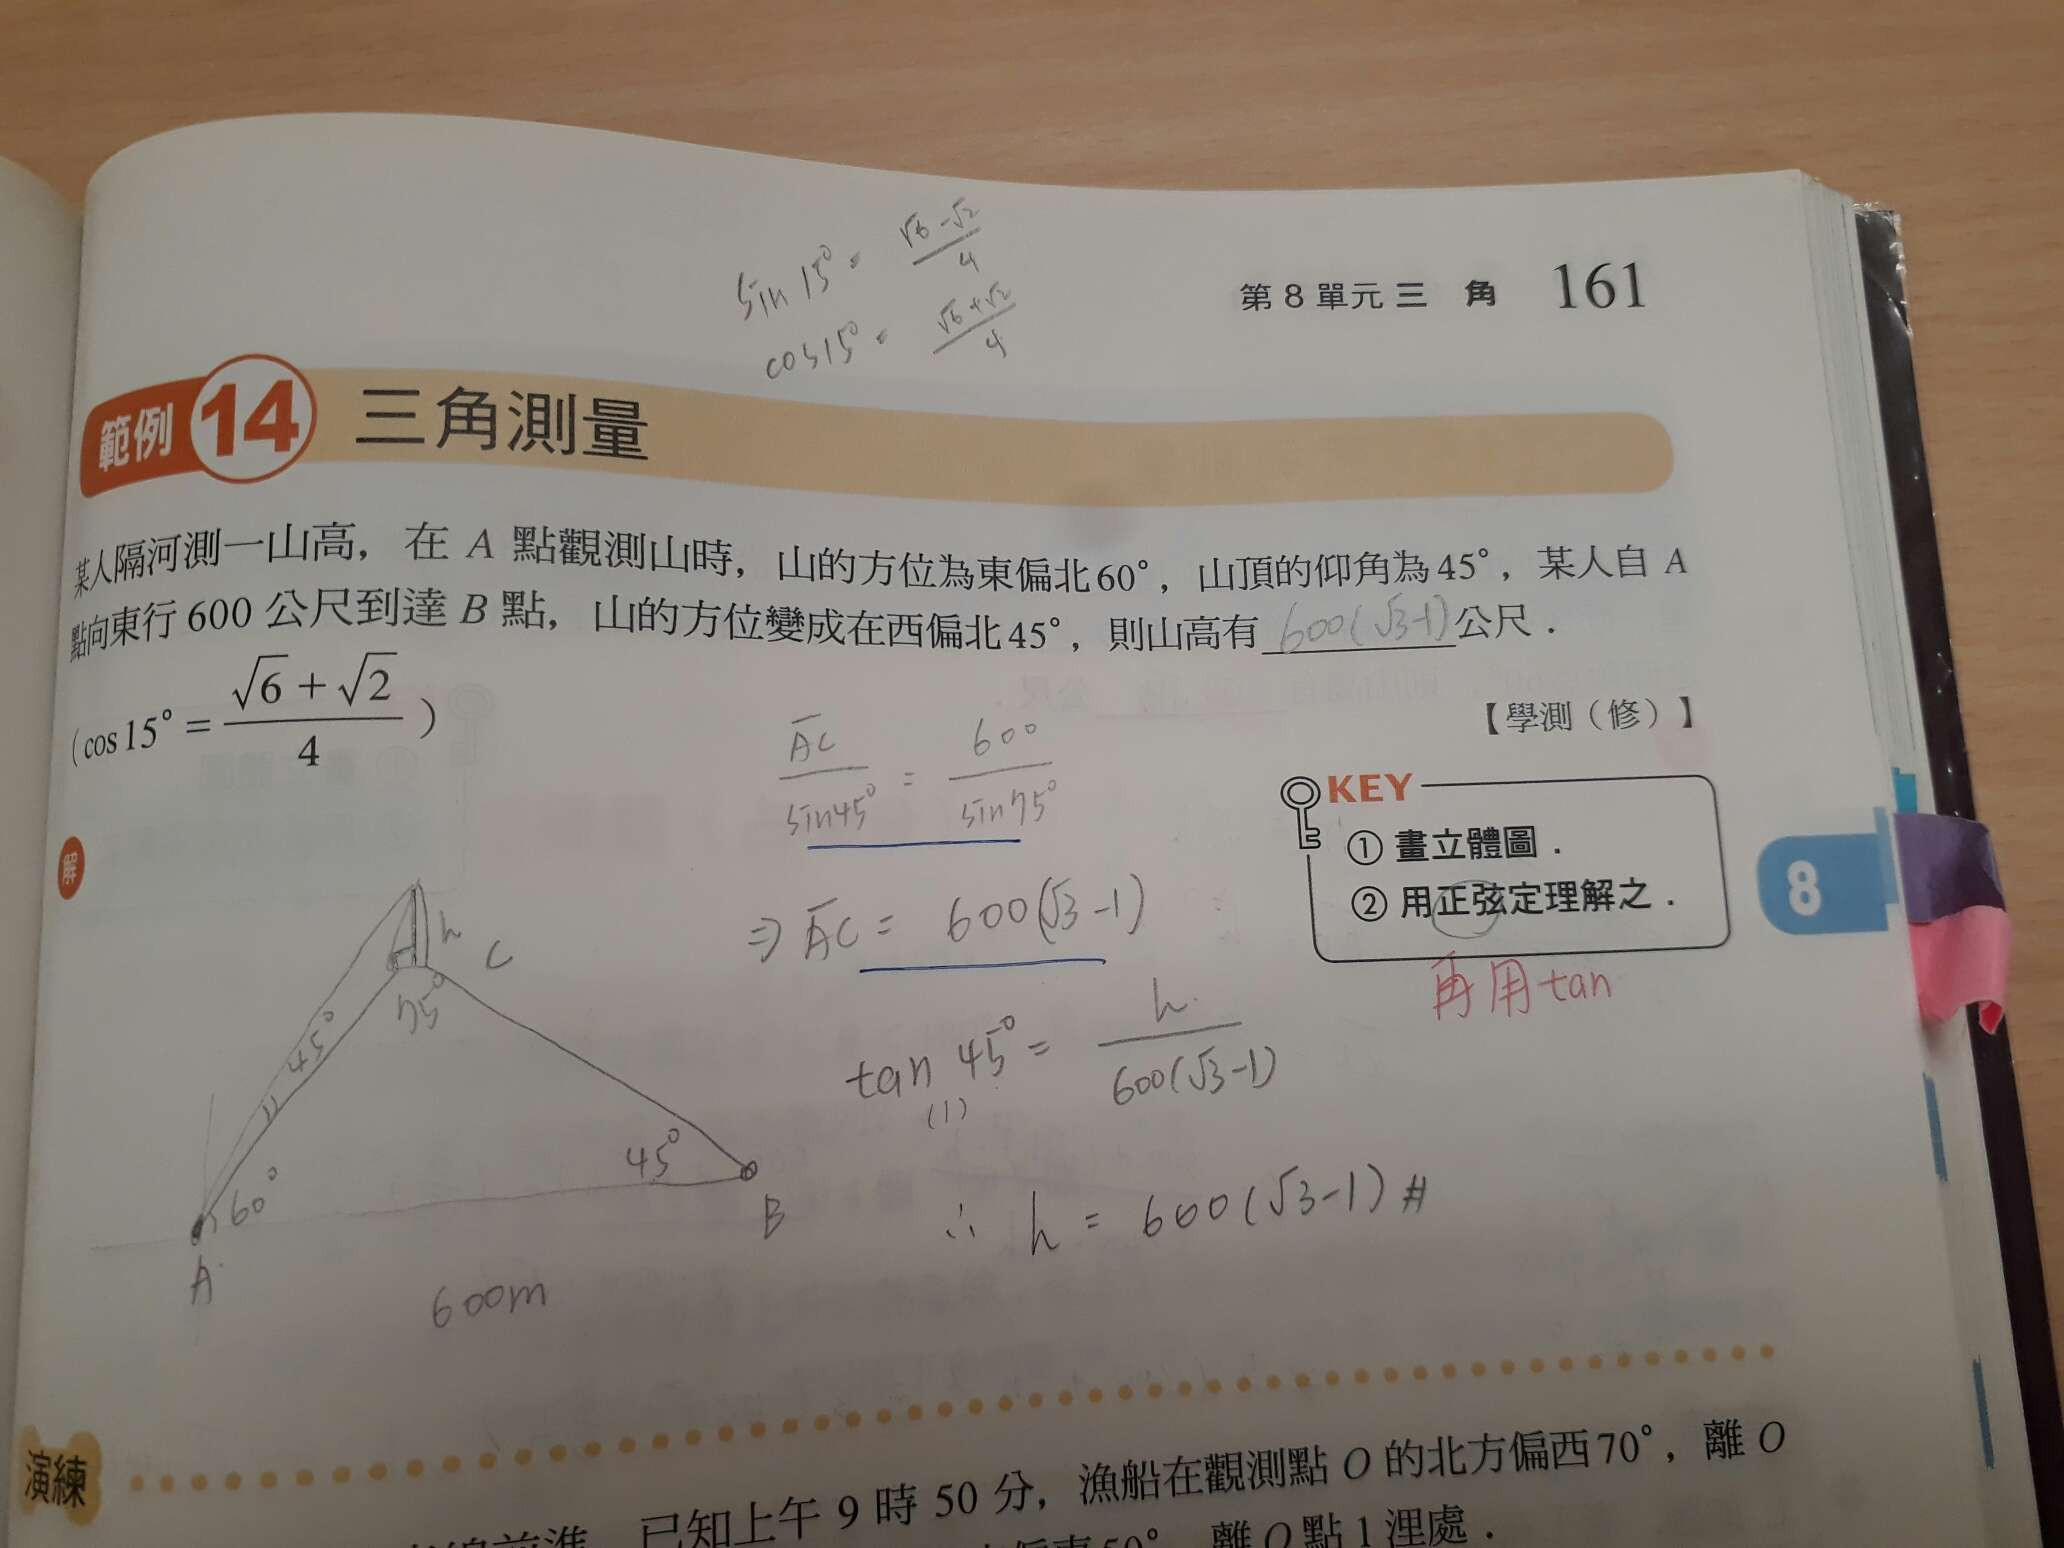 sin 15° = √6 - √2 / 4
cos 15° = √6 + √2 / 4
第8單元 三 角 161
範例 14 三角測量
某人隔河測一山高，在 A 點觀測山時，山的方位為東偏北60°，山頂的仰角為45°，某人自 A
點向東行 600 公尺到達 B 點，山的方位變成在西偏北45°，則山高有 600(√3-1) 公尺．
(cos 15° = √6 + √2 / 4)
【學測（修）】
解
AC / sin45° = 600 / sin75°
⇒ AC = 600(√3-1)
tan 45° = h / 600(√3-1)
(1)
∴ h = 600(√3-1) #
KEY
① 畫立體圖．
② 用正弦定理解之．
再用tan
8
h
C
75°
45°
60°
45°
A
B
600m
演練
已知上午 9 時 50 分，漁船在觀測點 O 的北方偏西70°，離 O
50°，離 O 點 1 浬處．